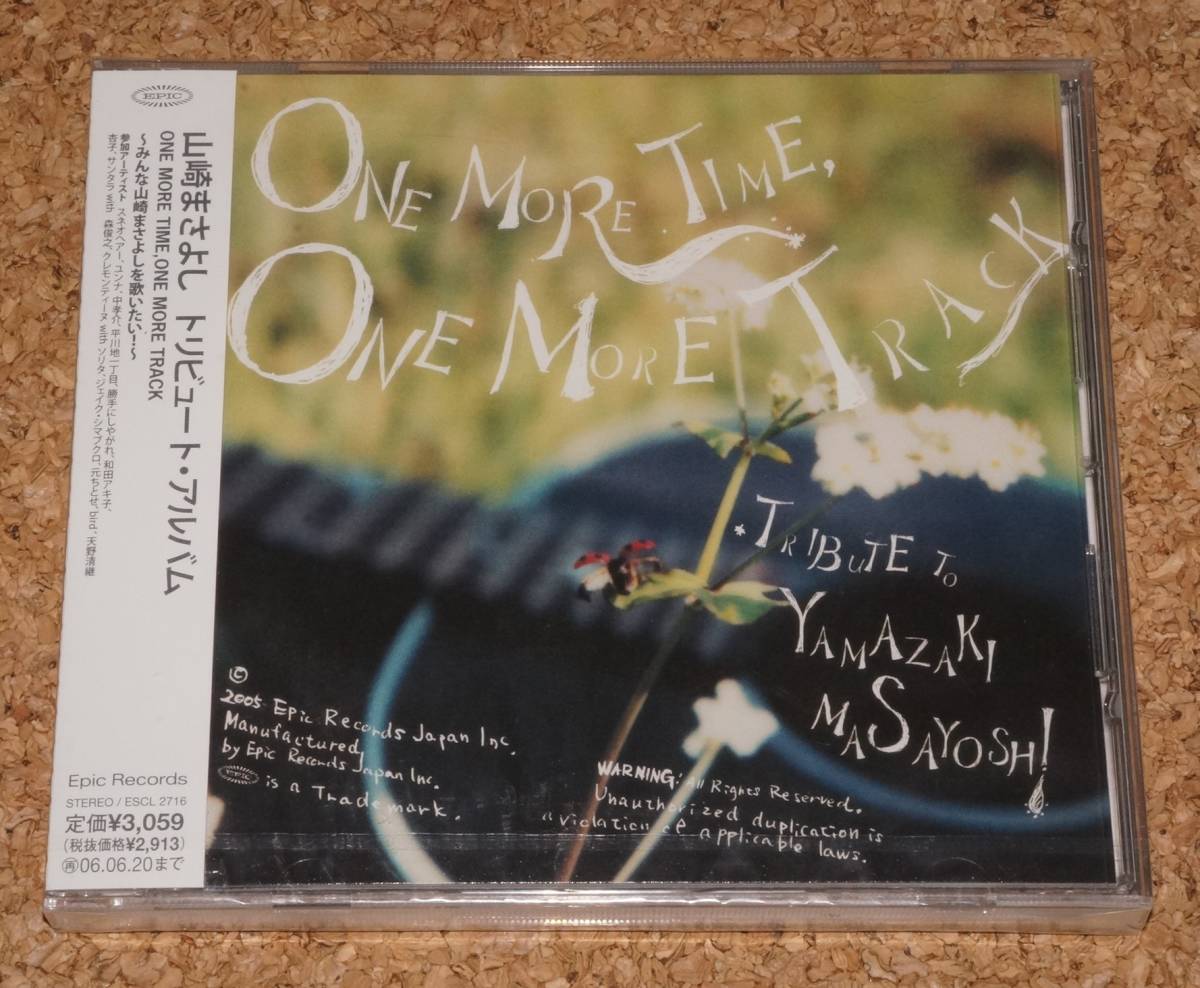 EPIC
山崎まさよし トリビュート・アルバム
ONE MORE TIME,ONE MORE TRACK
〜みんな山崎まさよしを歌いたい!〜
参加アーティスト スネオヘアー、ユンナ、中孝介、平川地一丁目、勝手にしやがれ、和田アキ子、
杏子、サンタラ with 森俊之、クレモンティーヌ with ソリタ、ジェイク・シマブクロ、元ちとせ、bird、天野清継
Epic Records
STEREO / ESCL 2716
定価¥3,059
(税抜価格¥2,913)
再06.06.20まで
ONE MORE TIME,
ONE MORE TRACK
TRIBUTE TO
YAMAZAKI
MASAYOSHI!
©
2005 Epic Records Japan Inc.
Manufactured
by Epic Records Japan Inc.
EPIC is a Trademark.
WARNING: All Rights Reserved.
Unauthorized duplication is
a violation of applicable laws.